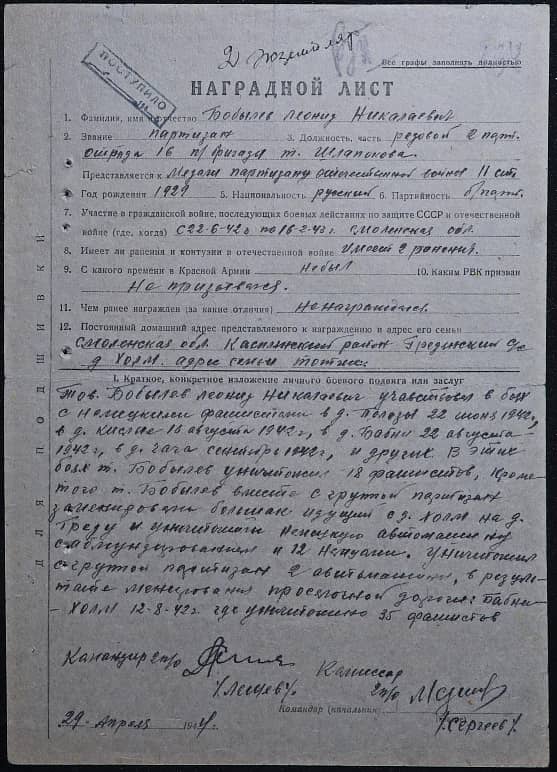 2 экземпляр
Все графы заполнять полностью
ПОСТУПИЛО
НАГРАДНОЙ ЛИСТ
1. Фамилия, имя и отчество Бобылев Леонид Николаевич
2. Звание партизан 3. Должность, часть редовой 2 парт.
отряда 16 п/бригады т. Шлапокова.
Представляется к Медали партизану отечественной войны II ст
Год рождения 1929 5. Национальность русский 6. Партийность б/парт.
7. Участие в гражданской войне, последующих боевых действиях по защите СССР и отечественной
войне (где, когда) с 22-6-42г по 16-2-43г. Смоленская обл.
8. Имеет ли ранения и контузии в отечественной войне имеет 2 ранения.
9. С какого времени в Красной Армии небыл 10. Каким РВК призван
Не призывался.
11. Чем ранее награжден (за какие отличия) ненаграждался.
12. Постоянный домашний адрес представляемого к награждению и адрес его семьи
Смоленская обл. Касплянский район Грединский с/с
д. Холм. адрес семьи тотже.
I. Краткое, конкретное изложение личного боевого подвига или заслуг
Тов. Бобылев Леонид Николаевич участвовал в боях
с немецкими фашистами в д. 22 июня 1942г,
в д. Кислые 16 августа 1942г, в д. Бабни 22 августа
1942г, в д. сентябрь 1942г, и других В этих
боях т. Бобылев уничтожил 18 фашистов, Кроме
того т. Бобылев вместе с групой партизан
заменировали большак идущий с д. Холм на д.
Греду и уничтожили немецкую автомашину
с абмундированием и 12 немцами. Уничтожил
с групой партизан 2 автомашины, в резуль-
тате менирования проселочной дороги: Бабни
- Холм 12-8-42г. где уничтожено 35 фашистов
Командир 2 п/о Комиссар
/Лещев/ 2 п/о
Командир (начальник)
/Сергеев/
29 Апреля 1944г.
ДЛЯ ПОДШИВКИ